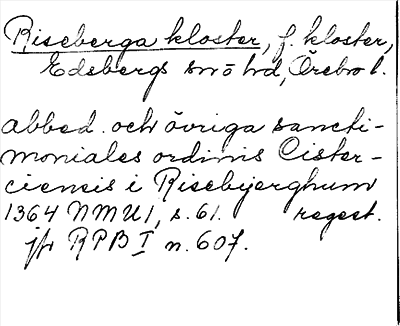 Riseberga kloster, f. kloster,
Edsbergs sn o hd, Örebro l.
abbed. och övriga sancti-
moniales ordinis Cister-
ciensis i Risebyerghum
1364 NMU 1, s. 61. regest.
jfr RPB I n. 607.